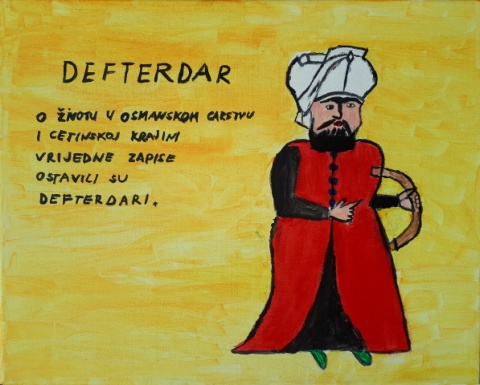 DEFTERDAR
O ŽIVOTU U OSMANSKOM CARSTVU
I CETINSKOJ KRAJIM
VRIJEDNE ZAPISE
OSTAVILI SU
DEFTERDARI.